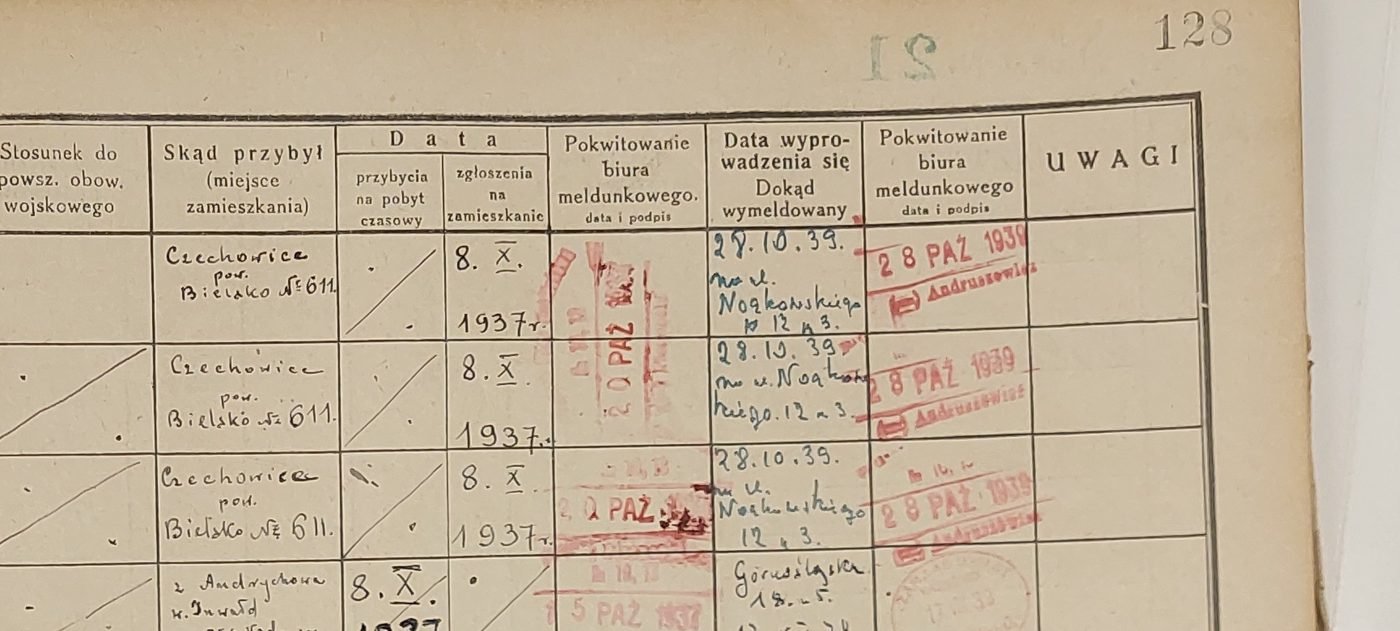 128
21
Stosunek do
powsz. obow.
wojskowego
Skąd przybył
(miejsce
zamieszkania)
Data
przybycia
na pobyt
czasowy
zgłoszenia
na
zamieszkanie
Pokwitowanie
biura
meldunkowego.
data i podpis
Data wypro-
wadzenia się
Dokąd
wymeldowany
Pokwitowanie
biura
meldunkowego
data i podpis
UWAGI
Czechowice
pow.
Bielsko № 611
8. X.
1937r.
20 PAŹ
28.10.39.
na ul.
Noakowskiego
12 3.
28 PAŹ 1939
(—) Andruszewicz
Czechowice
pow.
Bielsko № 611.
8. X.
1937.
28.10.39
na ul. Noakows
kiego. 12 m 3.
28 PAŹ 1939
(—) Andruszewicz
Czechowice
pow.
Bielsko № 611.
8. X.
1937r.
20 PAŹ
28.10.39.
na ul.
Noakowskiego
12 3.
28 PAŹ 1939
Andruszewicz
z Andrychowa
8. X.
1937
5 PAŹ 1937
Górnośląska
18. m 5.